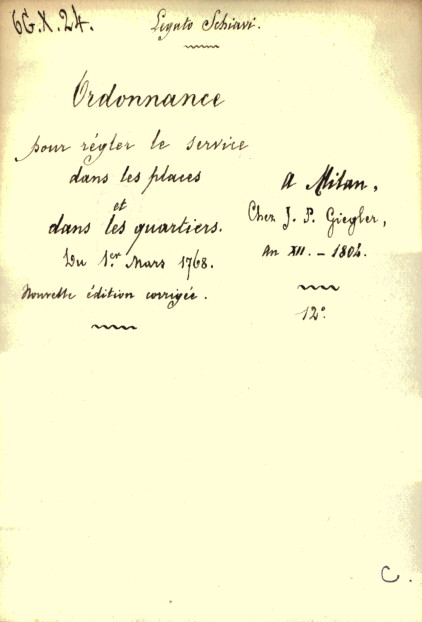 6G.X.24.
Legato Schiavi.
Ordonnance
pour régler le service
dans les places
et
dans les quartiers.
Du 1.er Mars 1768.
Nouvelle édition corrigée.
A Milan,
Chez J. P. Giegler,
An XII. - 1804.
12°.
C.